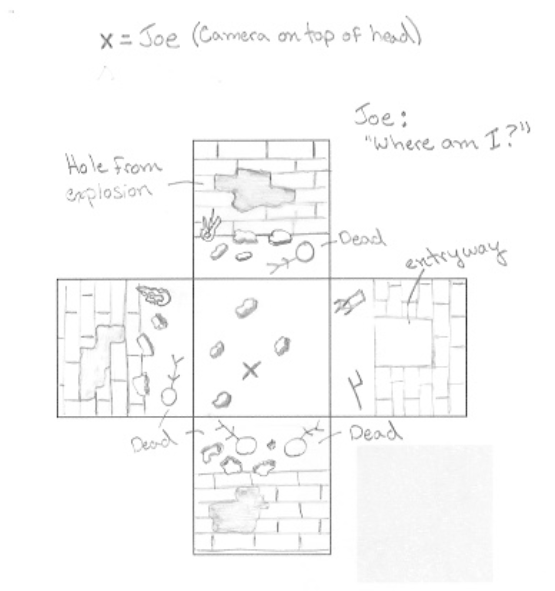 x = Joe (Camera on top of head)
Joe:
"Where am I?"
Hole from
explosion
Dead
entryway
Dead
Dead